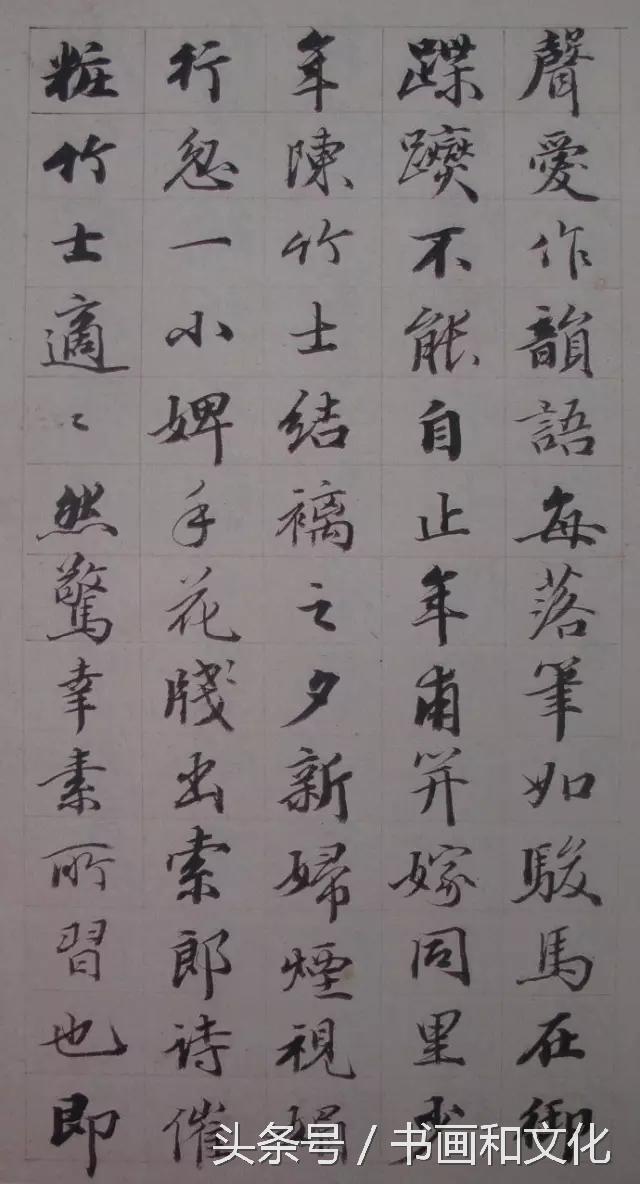 聲愛作韻語每落筆如駿馬在御
蹀躞不能自止年甫笄嫁同里少
年陳竹士結褵之夕新婦煙視媚
行忽一小婢手花牋出索郎詩催
粧竹士適〻然驚幸素所習也即
头条号 / 书画和文化